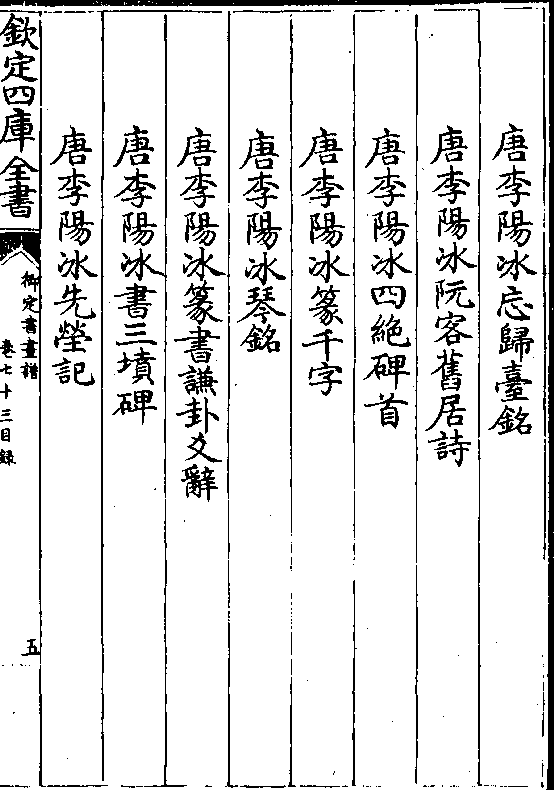 唐李陽冰忘歸臺銘
唐李陽冰阮客舊居詩
唐李陽冰四絶碑首
唐李陽冰篆千字
唐李陽冰琴銘
唐李陽冰篆書謙卦爻辭
唐李陽冰書三墳碑
唐李陽冰先塋記
欽定四庫全書
御定書畫譜
卷七十三目録
五